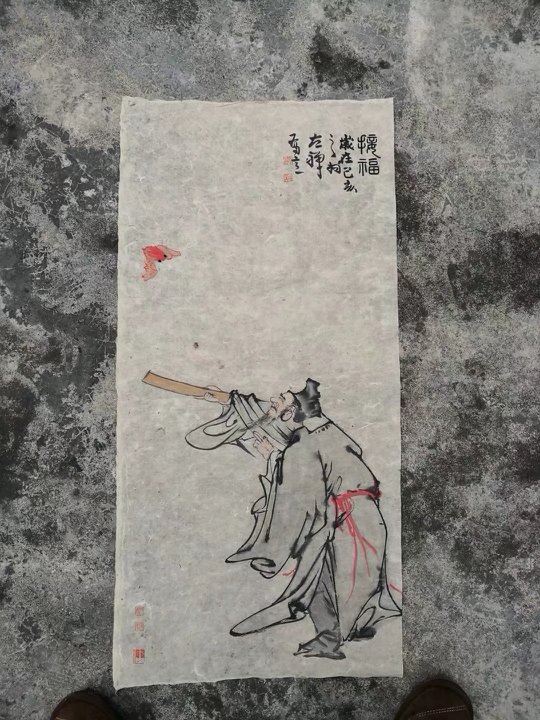 接福
歲在己亥
之初
左禪